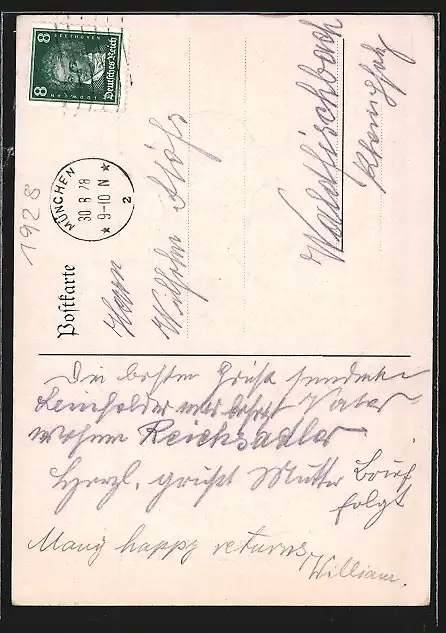 8 8
BEETHOVEN
LUDWIG VAN
Deutsches Reich
MÜNCHEN
30.8.28
* 9-10 N *
2
1928
Postkarte
Herrn
Wilhelm
Waldfischbach
Rheinpfalz
Die besten Grüße sendet
Vater
wohne Reichsadler
Herzl. grüßt Mutter Brief
folgt
Many happy returns
William.